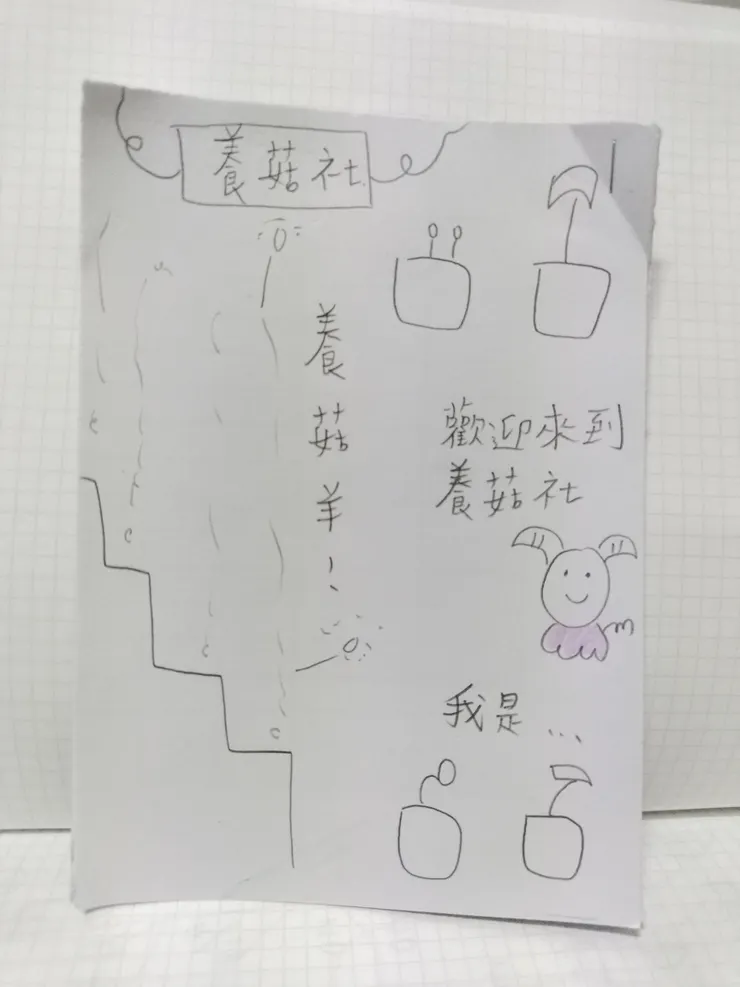 養菇社
歡迎來到
養菇社
我是...
養菇羊!